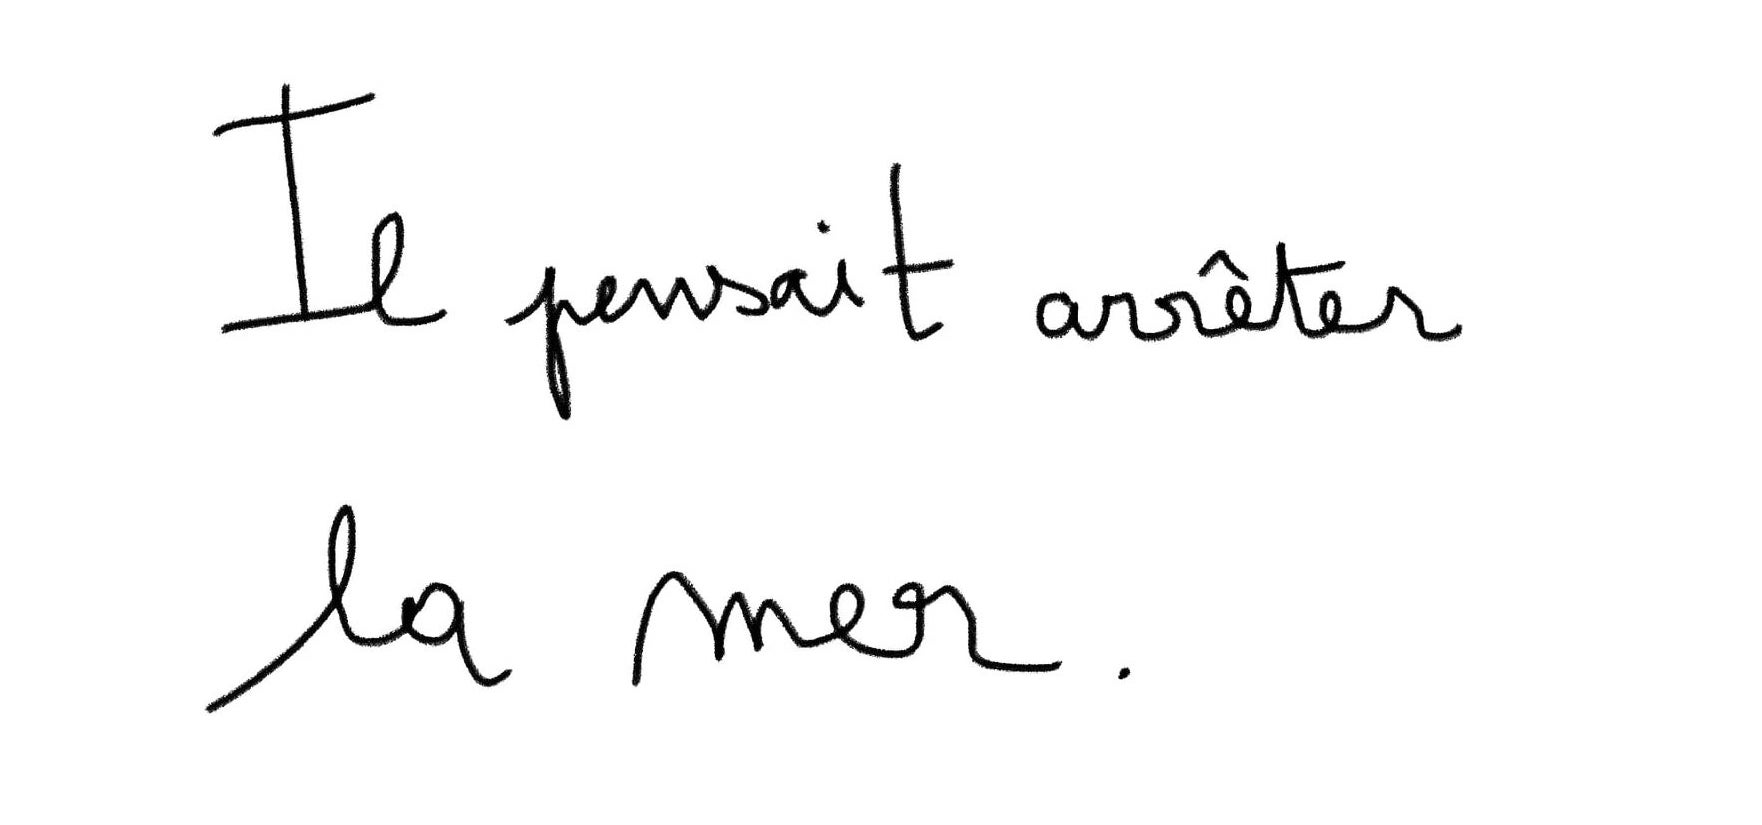 Il pensait arrêter
la mer.